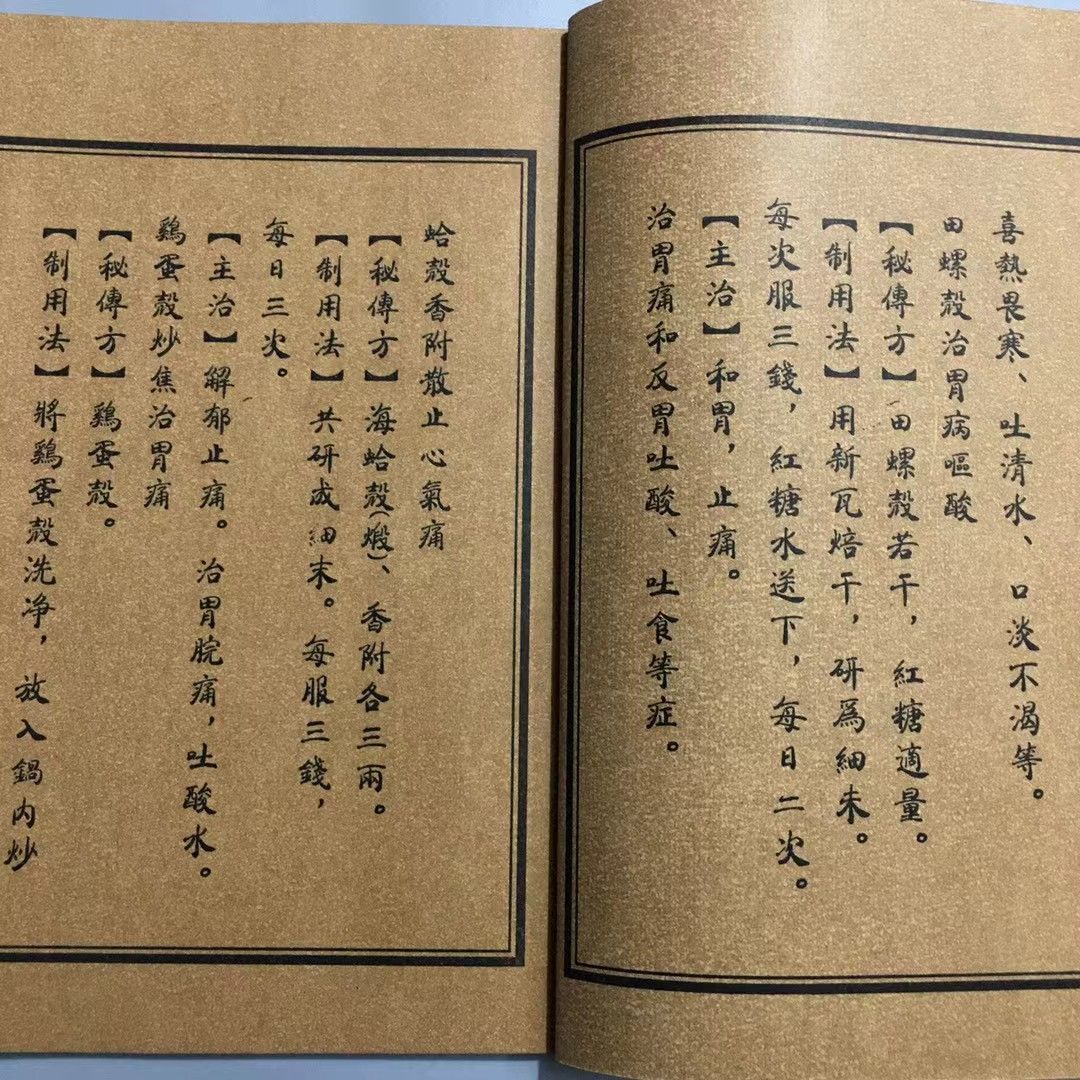 喜熱畏寒、吐清水、口淡不渴等。
田螺殼治胃病嘔酸
【秘傳方】田螺殼若干，紅糖適量。
【制用法】用新瓦焙干，研爲細末。
每次服三錢，紅糖水送下，每日二次。
【主治】和胃，止痛。
治胃痛和反胃吐酸、吐食等症。
蛤殼香附散止心氣痛
【秘傳方】海蛤殼(煅)、香附各三兩。
【制用法】共研成細末。每服三錢，
每日三次。
【主治】解郁止痛。治胃脘痛，吐酸水。
鷄蛋殼炒焦治胃痛
【秘傳方】鷄蛋殼。
【制用法】將鷄蛋殼洗净，放入鍋内炒